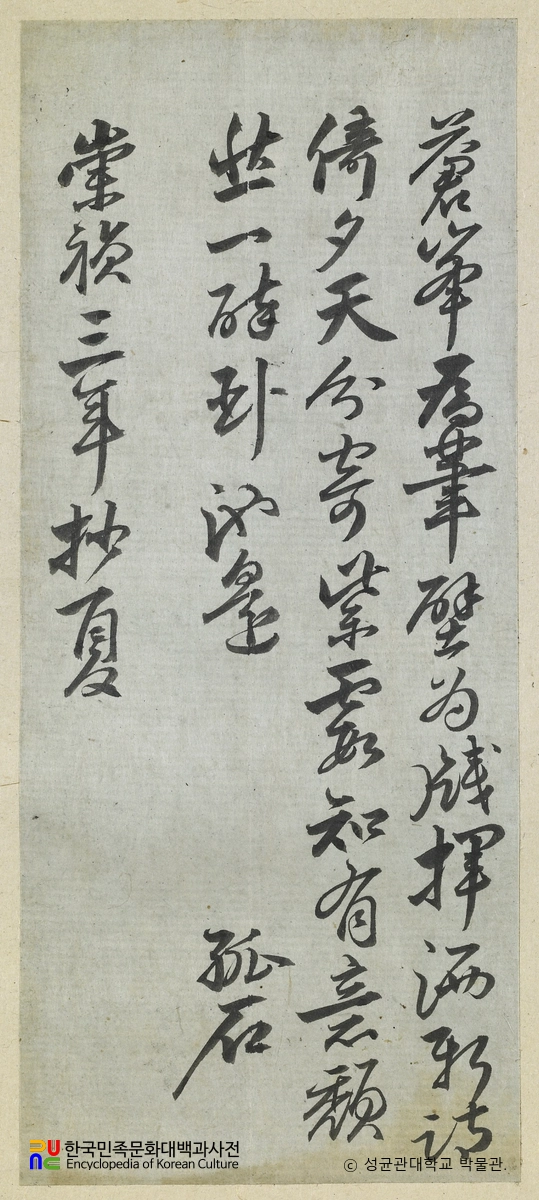 蒼峯爲筆壁為牋揮洒新詩
倚夕天分寄紫霞知有意頹
然一醉卧池邊
孤石
崇禎三年抄夏
한국민족문화대백과사전
Encyclopedia of Korean Culture
© 성균관대학교 박물관.